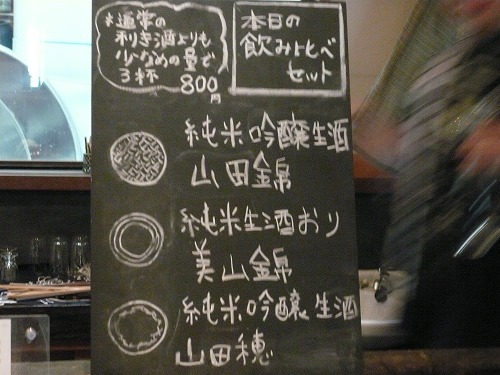 *通常の
利き酒よりも
少なめの量で
3杯 800円
本日の
飲み比べ
セット
純米吟醸生酒
山田錦
純米生酒おり
美山錦
純米吟醸生酒
山田穂